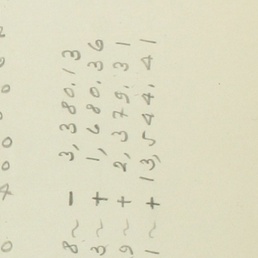 8 ~ - 3,380.13
3 ~ + 1,680.36
9 ~ + 2,379.31
1 ~ + 13,544.41